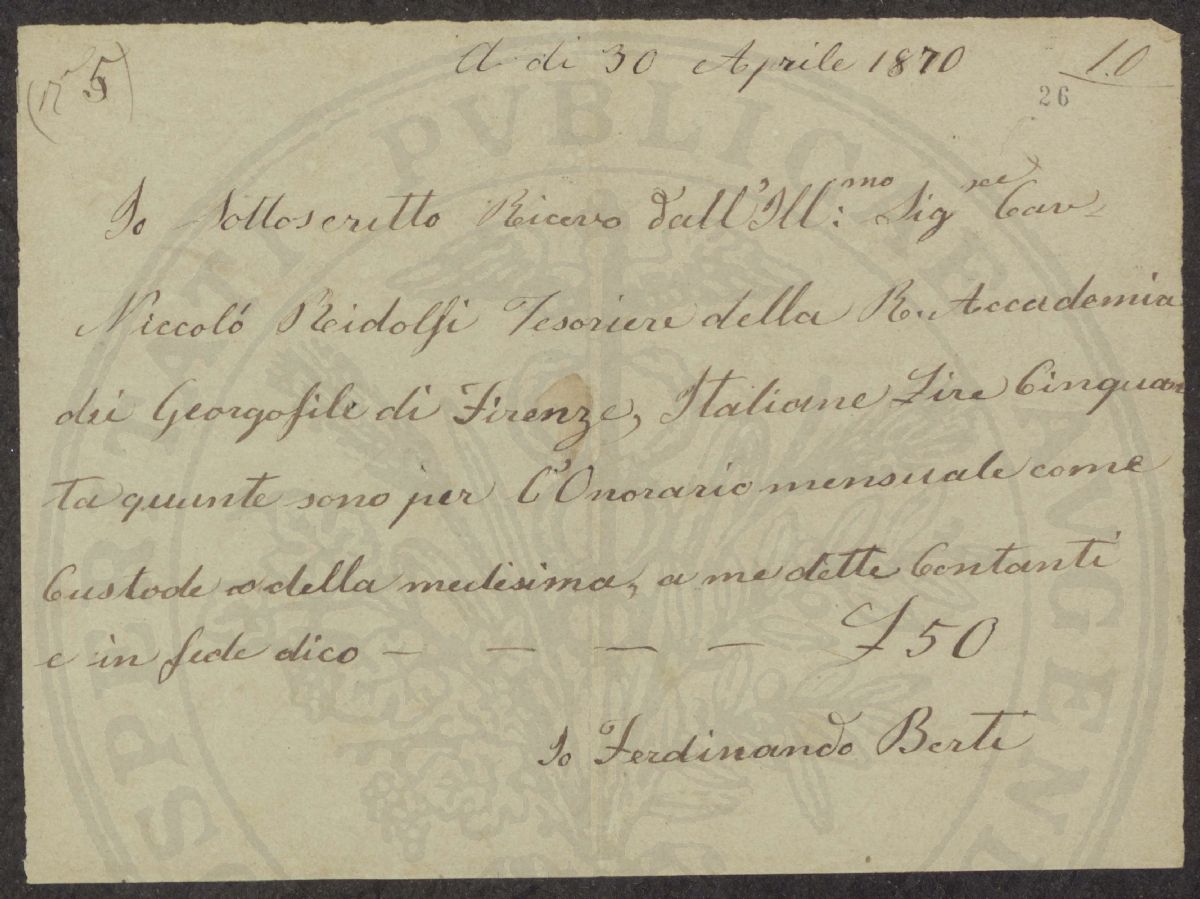 (n° 5)
A di 30 Aprile 1870
10
26
Io Sottoscritto Ricevo dall'Ill:mo Sig Cav
Niccoló Reidolfi Tesoriere della R. Accademia
dei Georgofili di Firenze, Italiane Lire Cinquan
ta quante sono per L'Onorario mensuale come
Custode della medesima, a me dette Contanti
e in fede dico — — — — £ 50
Io Ferdinando Berti